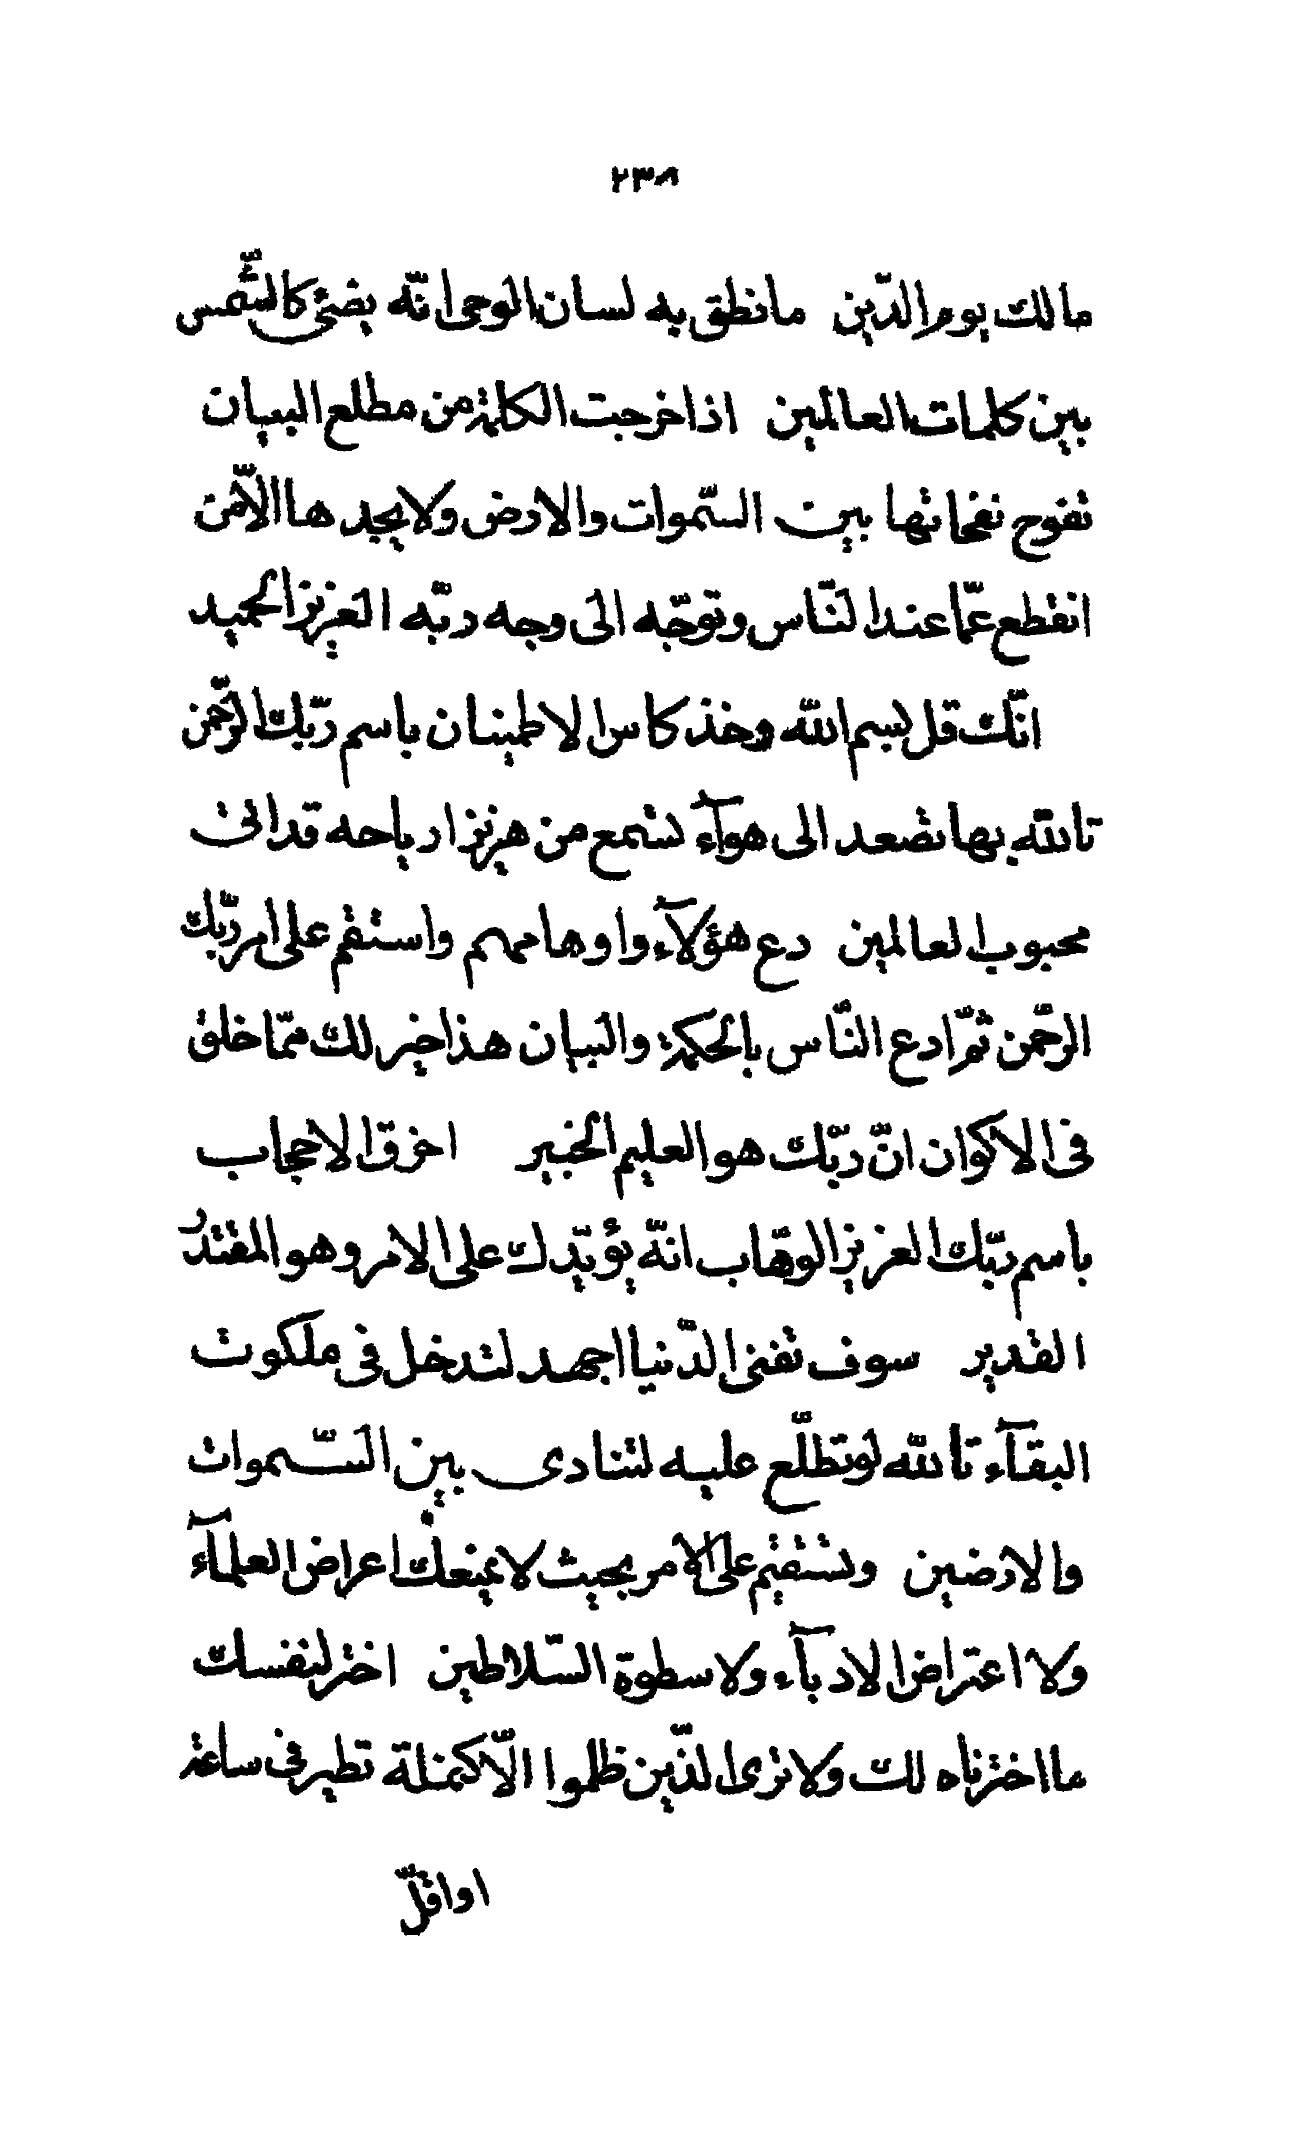 ٢٣٨
مالك يوم الدّين ما نطق به لسان الوحى انّه يضئ كالشّمس
بين كلمات العالمين اذا خرجت الكلمة من مطلع البيان
تفوح نفحاتها بين السّموات والارض ولا يجدها الّا من
انقطع عمّا عند النّاس وتوجّه الى وجه ربّه العزيز الحميد
انّك قل بسم الله وخذ كاس الاطمينان باسم ربّك الرّحمن
تالله بها تصعد الى هوآء تسمع من هزيز ارياحه قد اتى
محبوب العالمين دع هؤلآء واوهامهم واستقم على امر ربّك
الرحّمن ثمّ ادع النّاس بالحكمة والبيان هذا خير لك ممّا خلق
فى الاكوان انّ ربّك هو العليم الخبير اخرق الاحجاب
باسم ربّك العزيز الوهّاب انّه يؤيّدك على الامر وهو المقتدر
القدير سوف تفنى الدّنيا اجهد لتدخل فى ملكوت
البقآء تالله لو تطلّع عليه لتنادى بين السّموات
والارضين وتستقيم على الامر بحيث لا يمنعك اعراض العلمآء
ولا اعتراض الادبآء ولا سطوة السّلاطين اختر لنفسك
ما اخترناه لك ولا ترى الذّين ظلموا الّا كنملة تطير فى ساعة
او اقلّ